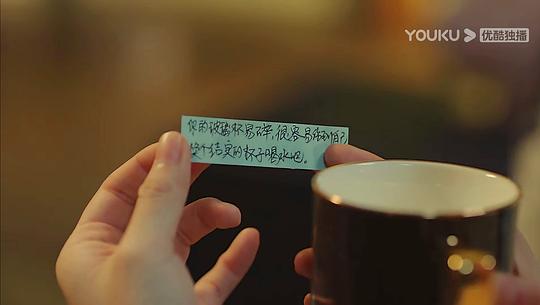 YOUKU 优酷独播
你的玻璃杯易碎,很容易伤到自己
换个结实的杯子喝水吧。